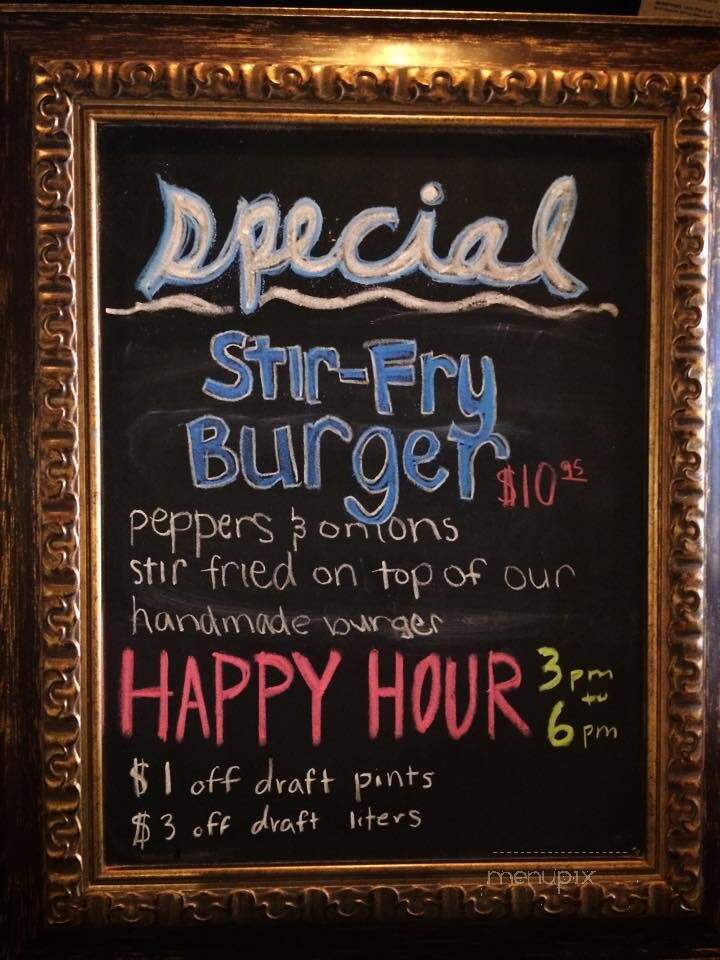 special
Stir-Fry
Burger $10 95
peppers & onions
stir fried on top of our
handmade burger
HAPPY HOUR 3pm to 6pm
$1 off draft pints
$3 off draft liters
menupix